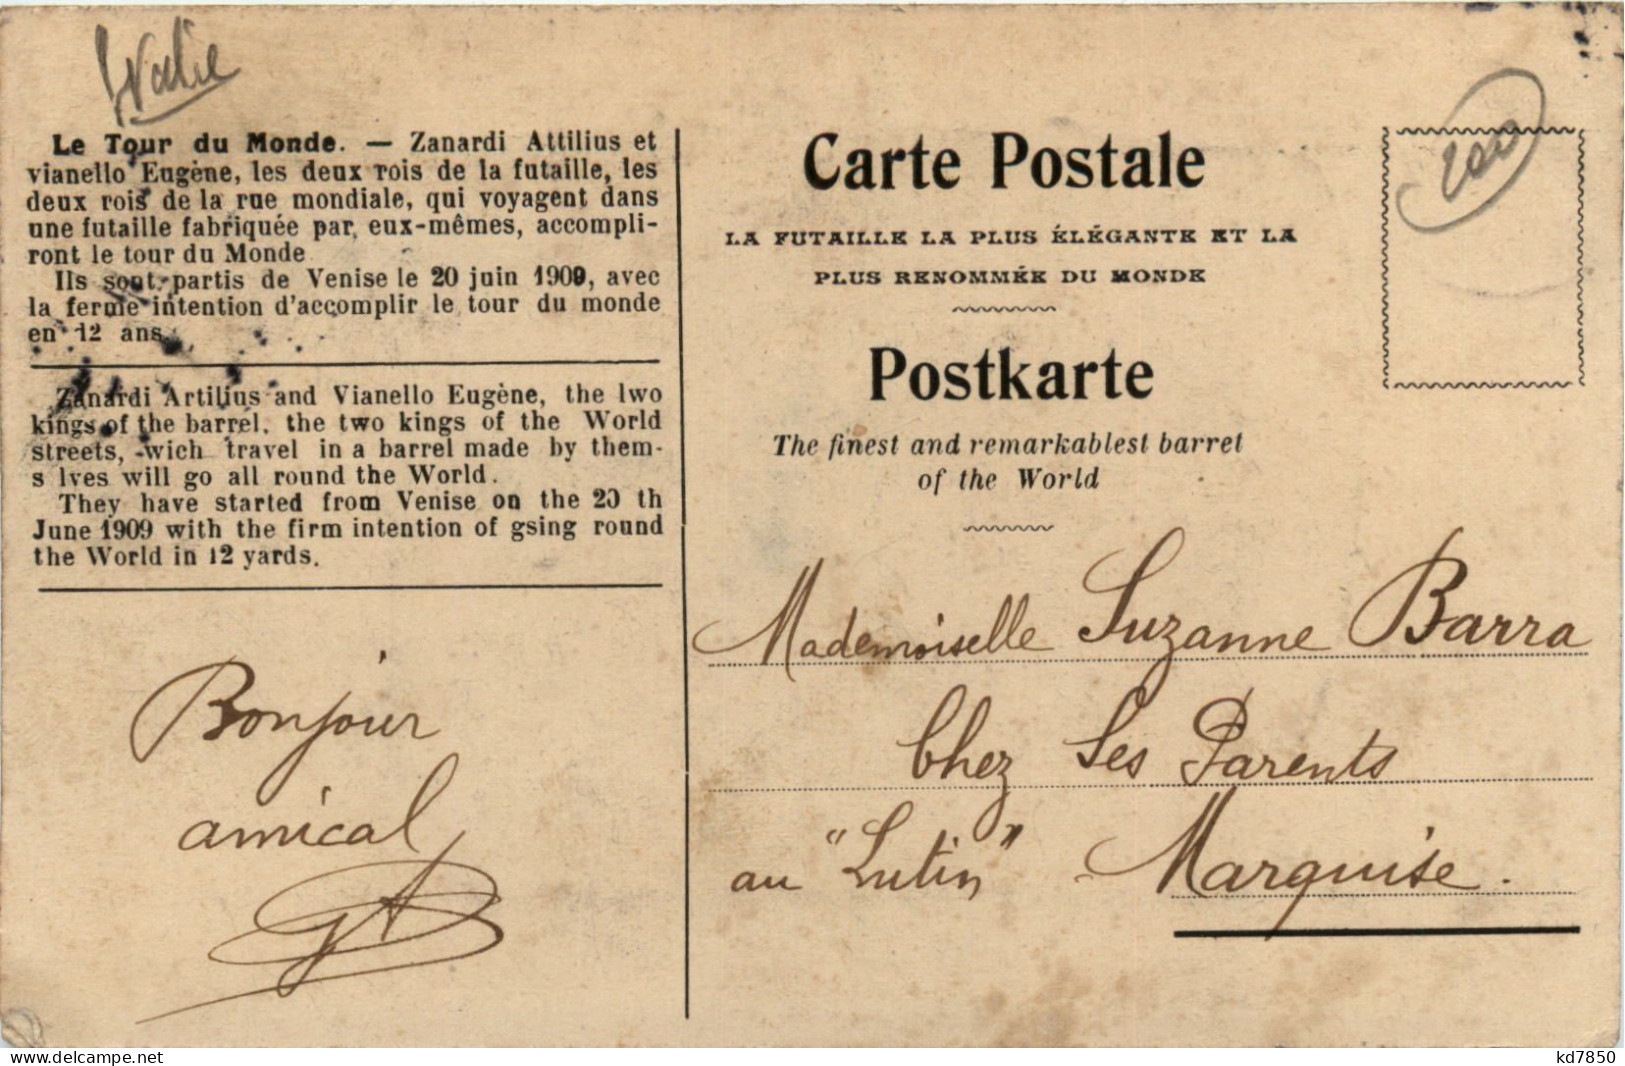 Le Tour du Monde. — Zanardi Attilius et
vianello Eugène, les deux rois de la futaille, les
deux rois de la rue mondiale, qui voyagent dans
une futaille fabriquée par eux-mêmes, accompli-
ront le tour du Monde
Ils sont partis de Venise le 20 juin 1909, avec
la ferme intention d'accomplir le tour du monde
en 12 ans.
Zanardi Artilius and Vianello Eugène, the lwo
kings of the barrel, the two kings of the World
streets, wich travel in a barrel made by them-
s lves will go all round the World.
They have started from Venise on the 20 th
June 1909 with the firm intention of gsing round
the World in 12 yards.
Bonjour
amical
Carte Postale
LA FUTAILLE LA PLUS ÉLÉGANTE ET LA
PLUS RENOMMÉE DU MONDE
Postkarte
The finest and remarkablest barret
of the World
Mademoiselle Suzanne Barra
Chez Ses Parents
au "Lutin" Marquise.
delcampe.net
kd7850